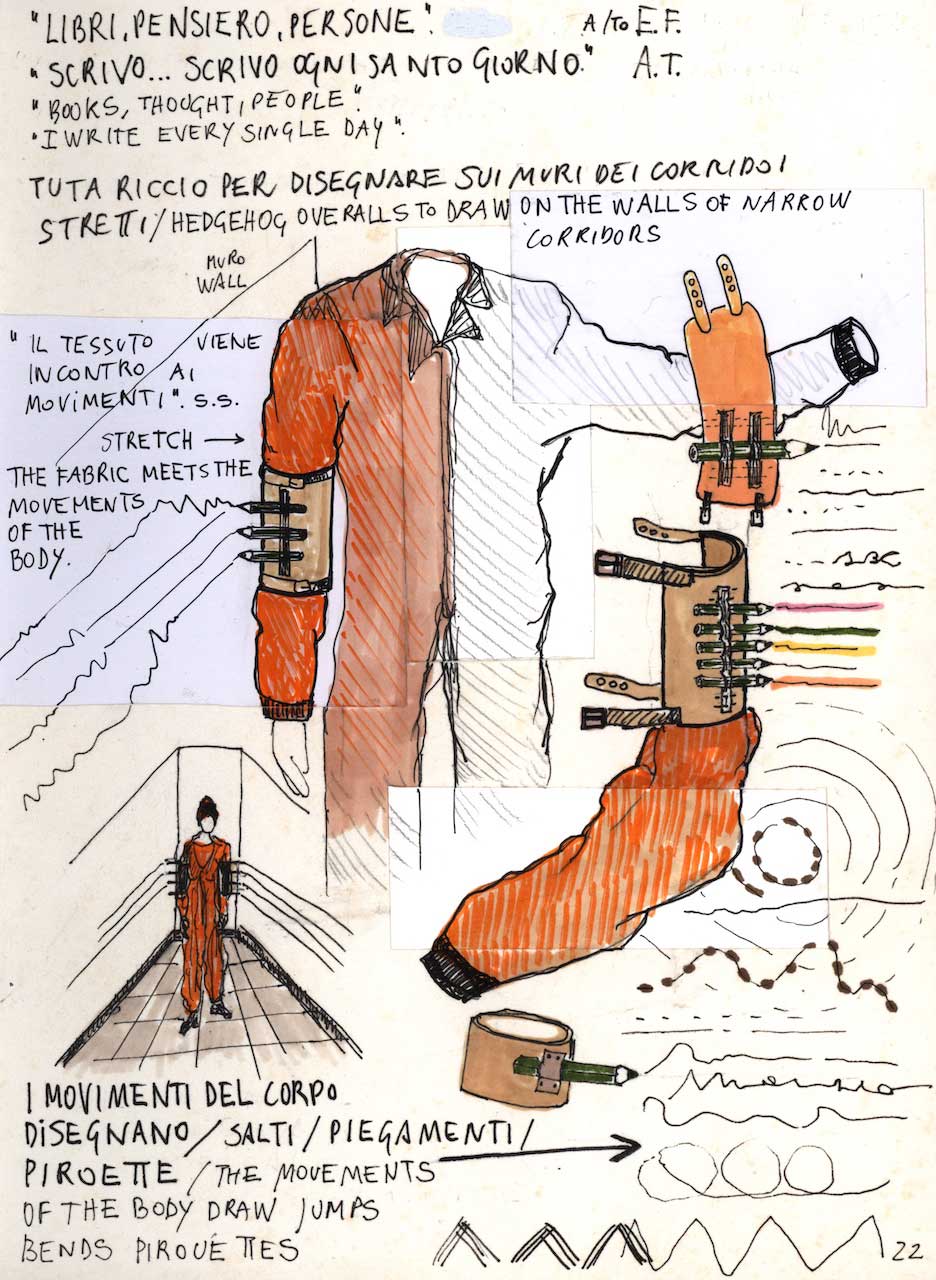 "LIBRI, PENSIERO, PERSONE". A/TO E.F.
"SCRIVO... SCRIVO OGNI SANTO GIORNO." A.T.
"BOOKS, THOUGHT, PEOPLE".
"I WRITE EVERY SINGLE DAY".
TUTA RICCIO PER DISEGNARE SUI MURI DEI CORRIDOI
STRETTI/HEDGEHOG OVERALLS TO DRAW ON THE WALLS OF NARROW
CORRIDORS
MURO
WALL
"IL TESSUTO VIENE
INCONTRO AI
MOVIMENTI". S.S.
STRETCH →
THE FABRIC MEETS THE
MOVEMENTS
OF THE
BODY.
ABC
I MOVIMENTI DEL CORPO
DISEGNANO/SALTI/PIEGAMENTI/
PIROETTE/THE MOVEMENTS
OF THE BODY DRAW JUMPS
BENDS PIROUÉTTES
22